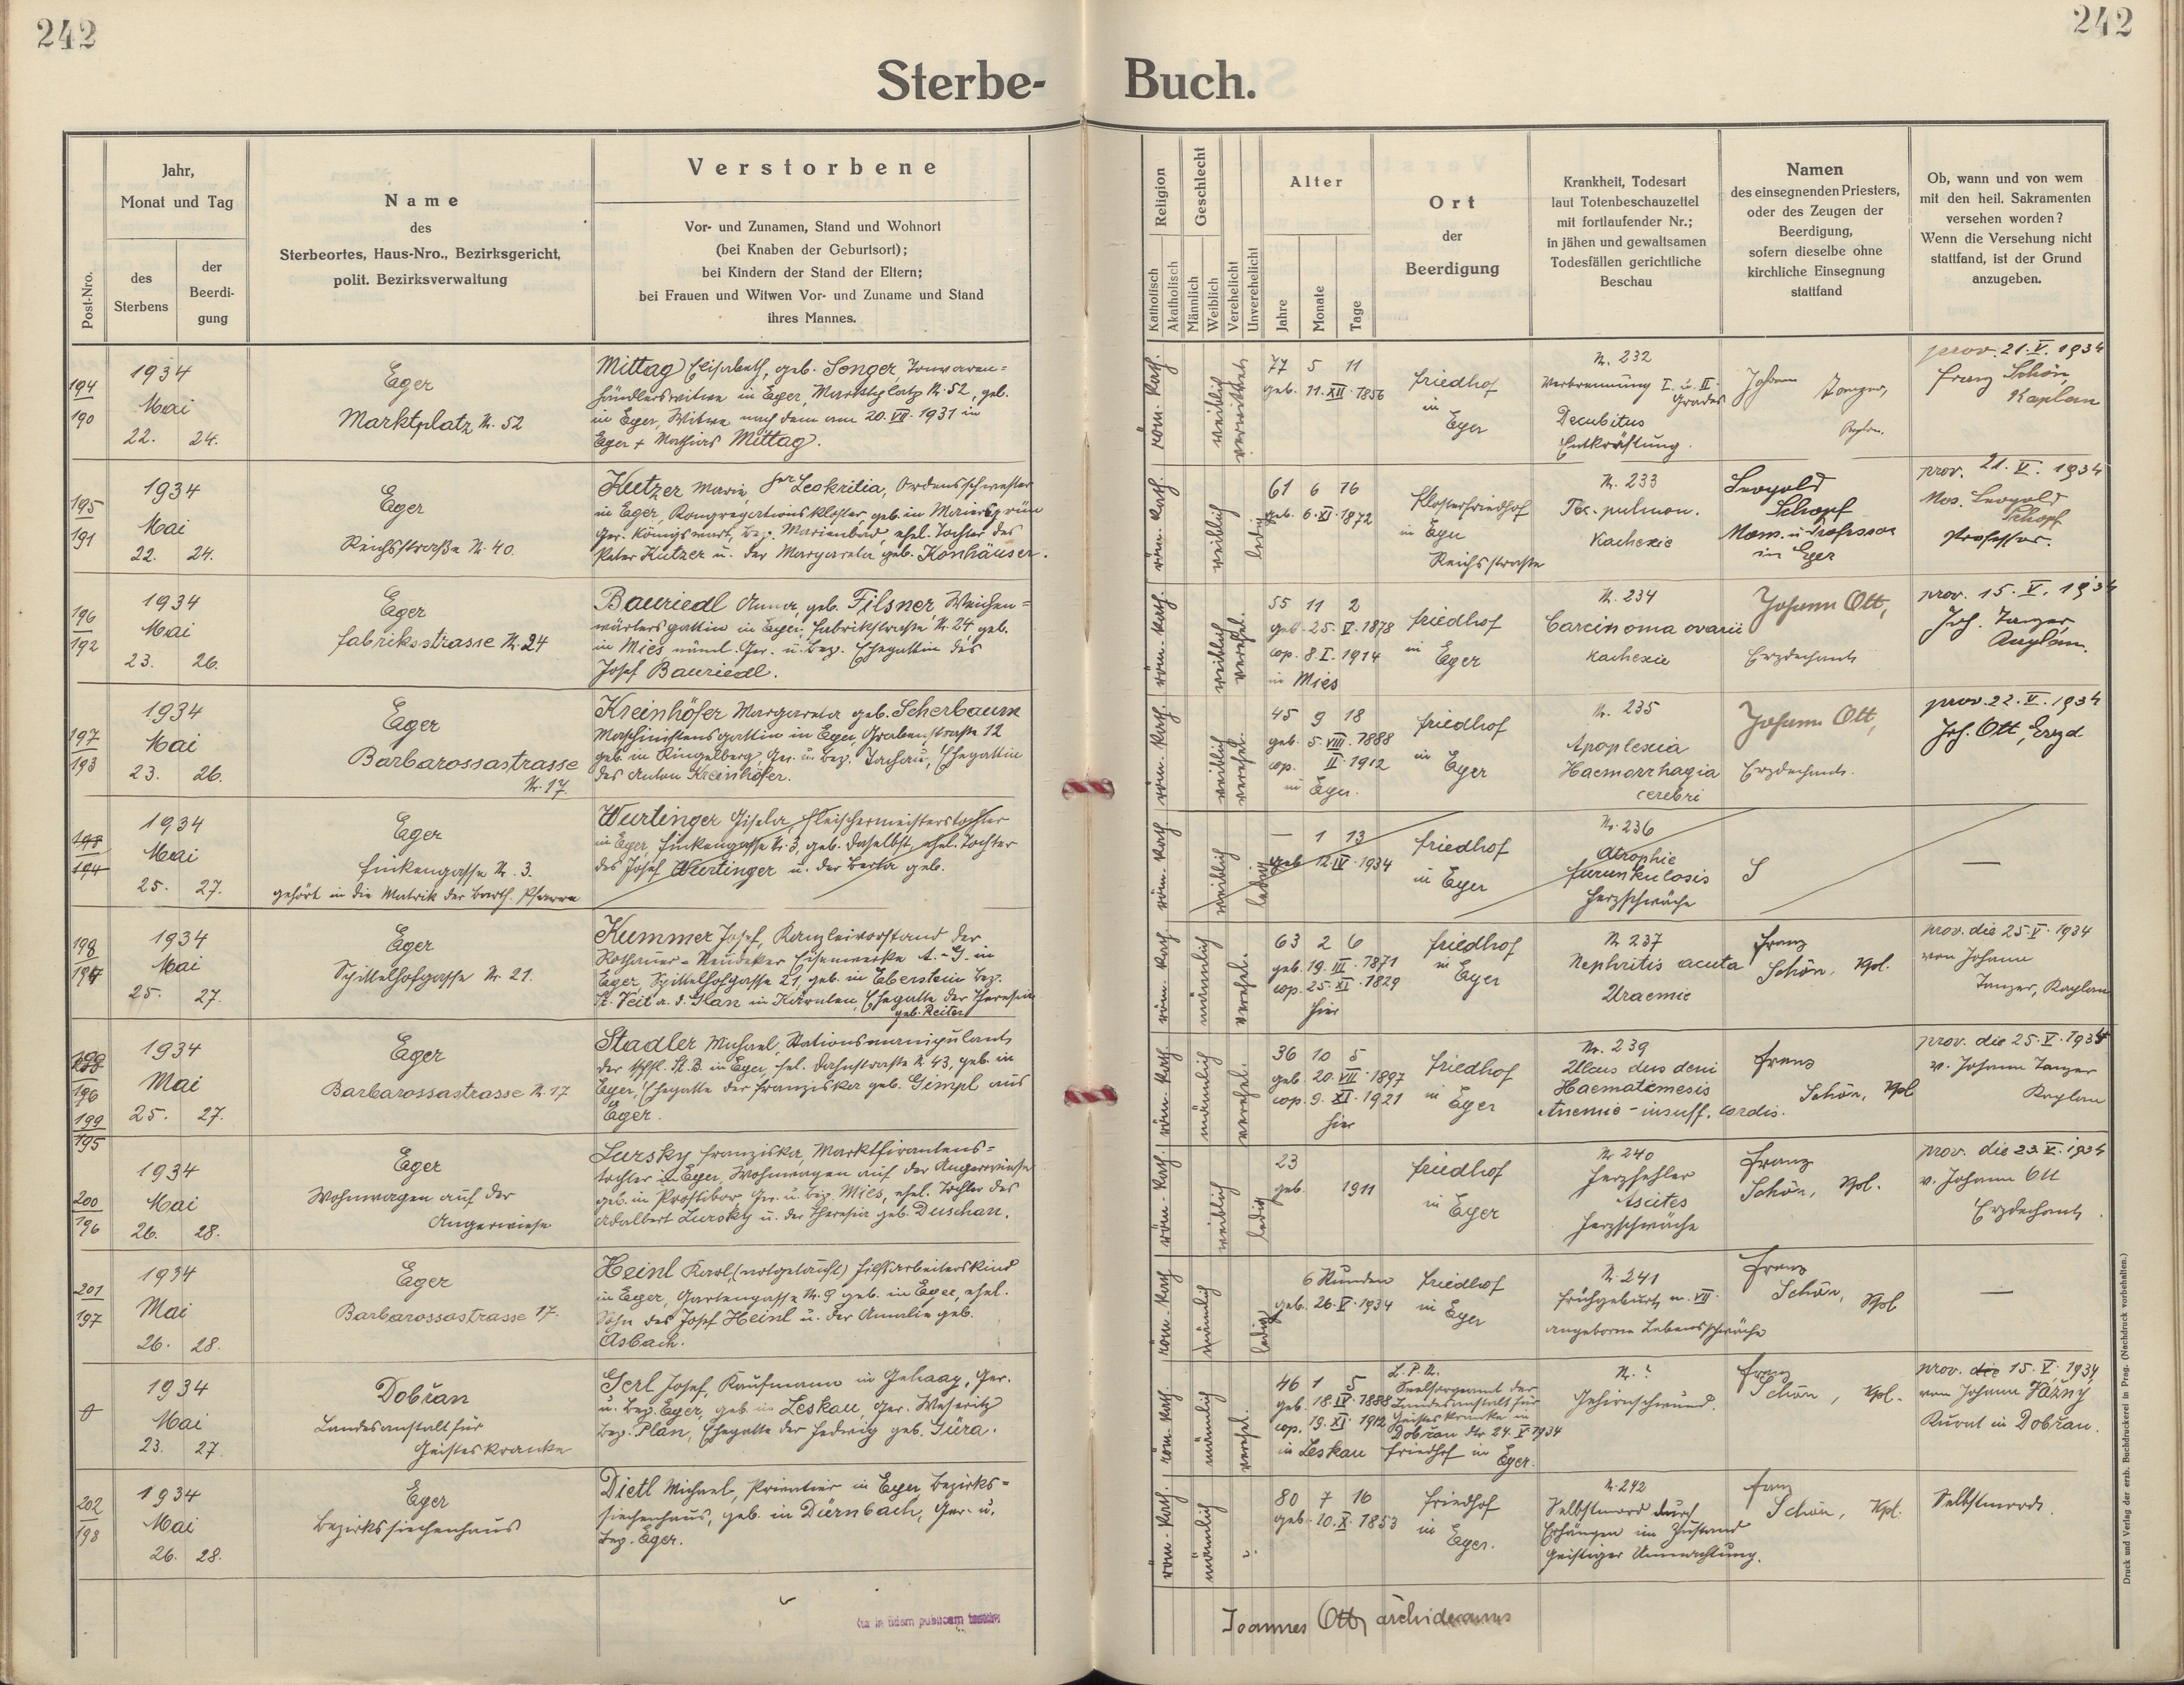 242
242
Sterbe- Buch.
Post-Nro.
Jahr,
Monat und Tag
des
Sterbens
der
Beerdi-
gung
Name
des
Sterbeortes, Haus-Nro., Bezirksgericht,
polit. Bezirksverwaltung
Verstorbene
Vor- und Zunamen, Stand und Wohnort
(bei Knaben der Geburtsort);
bei Kindern der Stand der Eltern;
bei Frauen und Witwen Vor- und Zuname und Stand
ihres Mannes.
Religion
Katholisch
Akatholisch
Geschlecht
Männlich
Weiblich
Verehelicht
Unverehelicht
Alter
Jahre
Monate
Tage
Ort
der
Beerdigung
Krankheit, Todesart
laut Totenbeschauzettel
mit fortlaufender Nr.;
in jähen und gewaltsamen
Todesfällen gerichtliche
Beschau
Namen
des einsegnenden Priesters,
oder des Zeugen der
Beerdigung,
sofern dieselbe ohne
kirchliche Einsegnung
stattfand
Ob, wann und von wem
mit den heil. Sakramenten
versehen worden?
Wenn die Versehung nicht
stattfand, ist der Grund
anzugeben.
194
190
1934
Mai
22. 24.
Eger
Marktplatz N. 52
Mittag Elisabeth, geb. Songer
händlerswitwe in Eger, Marktplatz N. 52, geb.
in Eger, Witwe nach dem am 20. VII. 1931 in
Eger + Mathias Mittag.
röm. kath.
weiblich
verwitwet
77 5 11
geb. 11. XII. 1856
Friedhof
in
Eger
N. 232
Verbrennung I. u. II.
Grades
Decubitus
Entkräftung.
Johann Tanzer,
Kaplan.
prov. 21. V. 1934
Franz Schön,
Kaplan
195
191
1934
Mai
22. 24.
Eger
Reichsstraße N. 40.
Kutzer Marie, Leokritia, Ordensschwester
in Eger, Kongregationskloster, geb. in Maiersgrün
Ger. Königswart, Bez. Marienbad, ehel. Tochter des
Peter Kutzer u. der Margareta geb. Konhäuser.
röm. kath.
weiblich
ledig
61 6 16
geb. 6. XI. 1872
Klosterfriedhof
in Eger
Reichsstrasse
N. 233
Tbc. pulmon.
Kachexie
Leopold
Schopf
Mons. u. Professor
in Eger
prov. 21. V. 1934
Mos. Leopold
Schopf
Professor.
196
192
1934
Mai
23. 26.
Eger
Fabriksstrasse N. 24
Bauriedl Anna, geb. Filsner, Weichen-
wärtersgattin in Eger, Fabrikstrasse N. 24, geb.
in Mies näml. Ger. u. Bez. Ehegattin des
Josef Bauriedl.
röm. kath.
weiblich
verehel.
55 11 2
geb. 25. V. 1878
cop. 8. I. 1914
in Mies
Friedhof
in
Eger
N. 234
Carcinoma ovarii
Kachexie
Johann Ott,
Erzdechant
prov. 15. V. 1934
Joh. Tanzer
Kaplan.
197
193
1934
Mai
23. 26.
Eger
Barbarossastrasse
N. 17.
Kreinhöfer Margareta geb. Scherbaum
Maschinistensgattin in Eger, Grabenstraße 12
geb. in Ringelberg, Ger. u. Bez. Tachau, Ehegattin
des Anton Kreinhöfer.
röm. kath.
weiblich
verehel.
45 9 18
geb. 5. VIII. 1888
cop. II. 1912
in Eger.
Friedhof
in
Eger
N. 235
Apoplexia
Haemorrhagia
cerebri
Johann Ott,
Erzdechant.
prov. 22. V. 1934
Joh. Ott, Erzd
198
194
1934
Mai
25. 27.
Eger
Finkengasse N. 3.
gehört in die Matrik der Barth. Pfarre
Wurtinger Gisela, Fleischermeisterstochter
in Eger, Finkengasse N. 3, geb. daselbst, ehel. Tochter
des Josef Wurtinger u. der Berta geb.
röm. kath.
weiblich
ledig
— 1 13
geb. 12. IV. 1934
Friedhof
in Eger
N. 236
Atrophie
Furunkulosis
Herzschwäche
—
198
194
1934
Mai
25. 27.
Eger
Schittelhofgasse N. 21.
Kummer Josef, Kanzleivorstand der
Rothauer-Neudeker Eisenwerke A.-G. in
Eger, Spittelhofgasse 21, geb. in Eberstein Bez.
St. Veit a. d. Glan in Kärnten, Ehegatte der Theresia
geb. Reiter
röm. kath.
männlich
verehel.
63 2 6
geb. 19. III. 1871
cop. 25. XI. 1829
hier
Friedhof
in
Eger
N. 237
Nephritis acuta
Uraemie
Franz
Schön, Kpl.
prov. die 25. V. 1934
von Johann
Tanzer, Kaplan
199
195
1934
Mai
25. 27.
Eger
Barbarossastrasse N. 17
Stadler Michael, Stationsmanipulant
der tschsl. St. B. in Eger, Fel. Dahnstrasse N. 43, geb. in
Eger, Ehegatte der Franziska geb. Gimpl aus
Eger.
röm. kath.
männlich
verehel.
36 10 5
geb. 20. VII. 1897
cop. 9. XI. 1921
hier
Friedhof
in Eger
Nr. 239
Ulcus duodeni
Haematemesis
Anemie - insuff. cordis.
Franz
Schön, Kpl
prov. die 25. V. 1934
v. Johann Tanzer
Kaplan
200
196
1934
Mai
26. 28.
Eger
Wohnwagen auf der
Angerwiese
Lursky Franziska, Marktfirantens-
tochter in Eger, Wohnwagen auf der Angerwiese
geb. in Prostibor Ger. u. Bez. Mies, ehel. Tochter des
Adalbert Lursky u. der Theresia geb. Duschan.
röm. kath.
weiblich
ledig
23
geb. 1911
Friedhof
in Eger
N. 240
Herzfehler
Ascites
Herzschwäche
Franz
Schön, Kpl.
prov. die 23. V. 1934
v. Johann Ott
Erzdechant.
201
197
1934
Mai
26. 28.
Eger
Barbarossastrasse 17.
Heinl Karl, (notgetauft) Hilfsarbeiterskind
in Eger, Gartengasse N. 9 geb. in Eger, ehel.
Sohn des Josef Heinl u. der Amalie geb.
Asbach.
röm. kath
männlich
ledig
6 Stunden
geb. 26. V. 1934
Friedhof
in Eger
N. 241
Frühgeburt m. VII.
angeborne Lebensschwäche
Franz
Schön, Kpl
—
1934
Mai
23. 27.
Dobřan
Landesanstalt für
Geisteskranke
Gerl Josef, Kaufmann in Gehaag, Ger.
u. Bez. Eger, geb. in Leskau, Ger. Weseritz
Bez. Plan, Ehegatte der Hedwig geb. Güra.
röm. kath.
männlich
verehel.
46 1 5
geb. 18. IV. 1888
cop. 19. XI. 1912
in Leskau
L. P. N.
Seelsorgeamt der
Landesanstalt für
Geisteskranke in
Dobřan dto 24. V. 1934
Friedhof in Eger.
N. ?
Gehirnschwund.
Franz
Schön, Kpl.
prov. die 15. V. 1934
von Johann Jažny
Kurat in Dobřan.
202
198
1934
Mai
26. 28.
Eger
Bezirkssiechenhaus
Dietl Michael, Privatier in Eger Bezirks-
siechenhaus, geb. in Dürnbach, Ger. u.
Bez. Eger.
röm. kath.
männlich
?
80 7 16
geb. 10. X. 1853
Friedhof
in
Eger.
N. 242
Selbstmord durch
Erhängen im Zustand
geistiger Umnachtung.
Franz
Schön, Kpl.
Selbstmord.
Joannes Ott, archidecanus
Druck und Verlag der erzb. Buchdruckerei in Prag. (Nachdruck vorbehalten.)